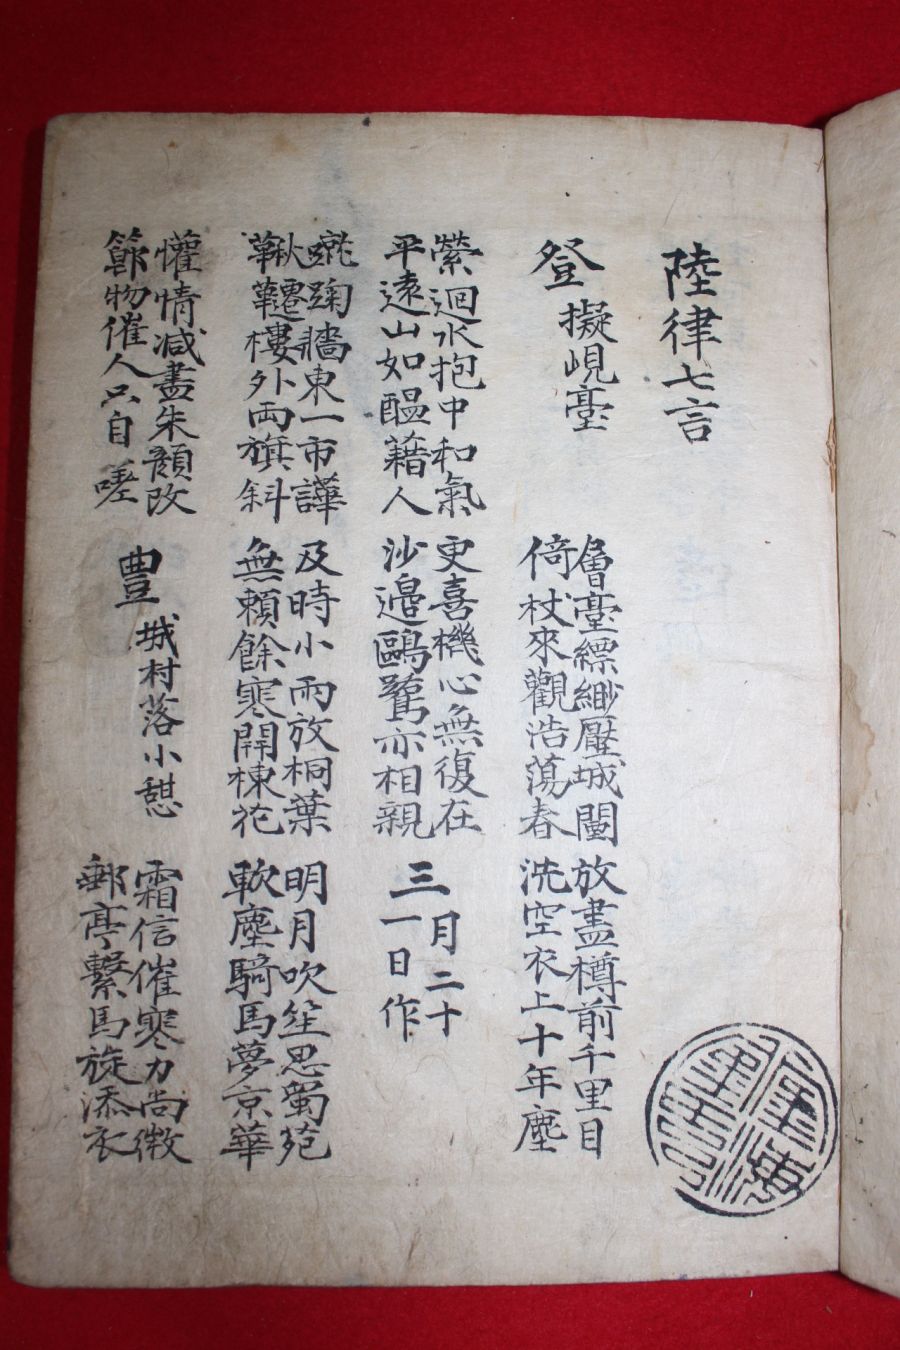 陸律七言
登擬峴臺
層臺縹緲壓城闉
倚杖來觀浩蕩春
放盡樽前千里目
洗空衣上十年塵
縈迴水抱中和氣
平遠山如醞藉人
更喜機心無復在
沙邊鷗鷺亦相親
三月二十
一日作
蹴踘牆東一市譁
鞦韆樓外兩旗斜
及時小雨放桐葉
無賴餘寒開楝花
明月吹笙思蜀苑
軟塵騎馬夢京華
懽情减盡朱顔改
節物催人只自嗟
豊城村落小憇
霜信催寒力尚微
郵亭繫馬旋添衣